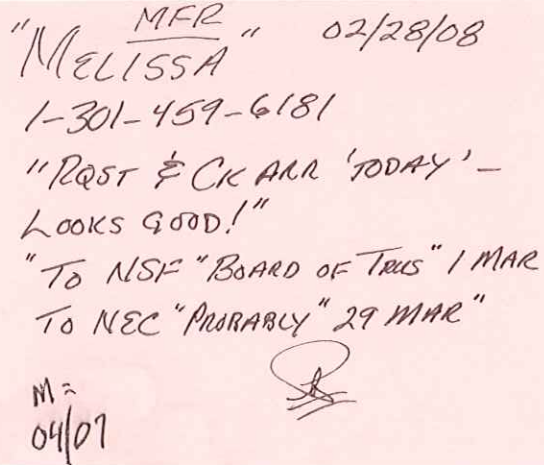 MFR
"MELISSA" 02/28/08
1-301-459-6181
"RQST & CK ARR 'TODAY' –
LOOKS GOOD!"
"TO NSF "BOARD OF TRUS" 1 MAR
TO NEC "PROBABLY" 29 MAR"
M=
04/07